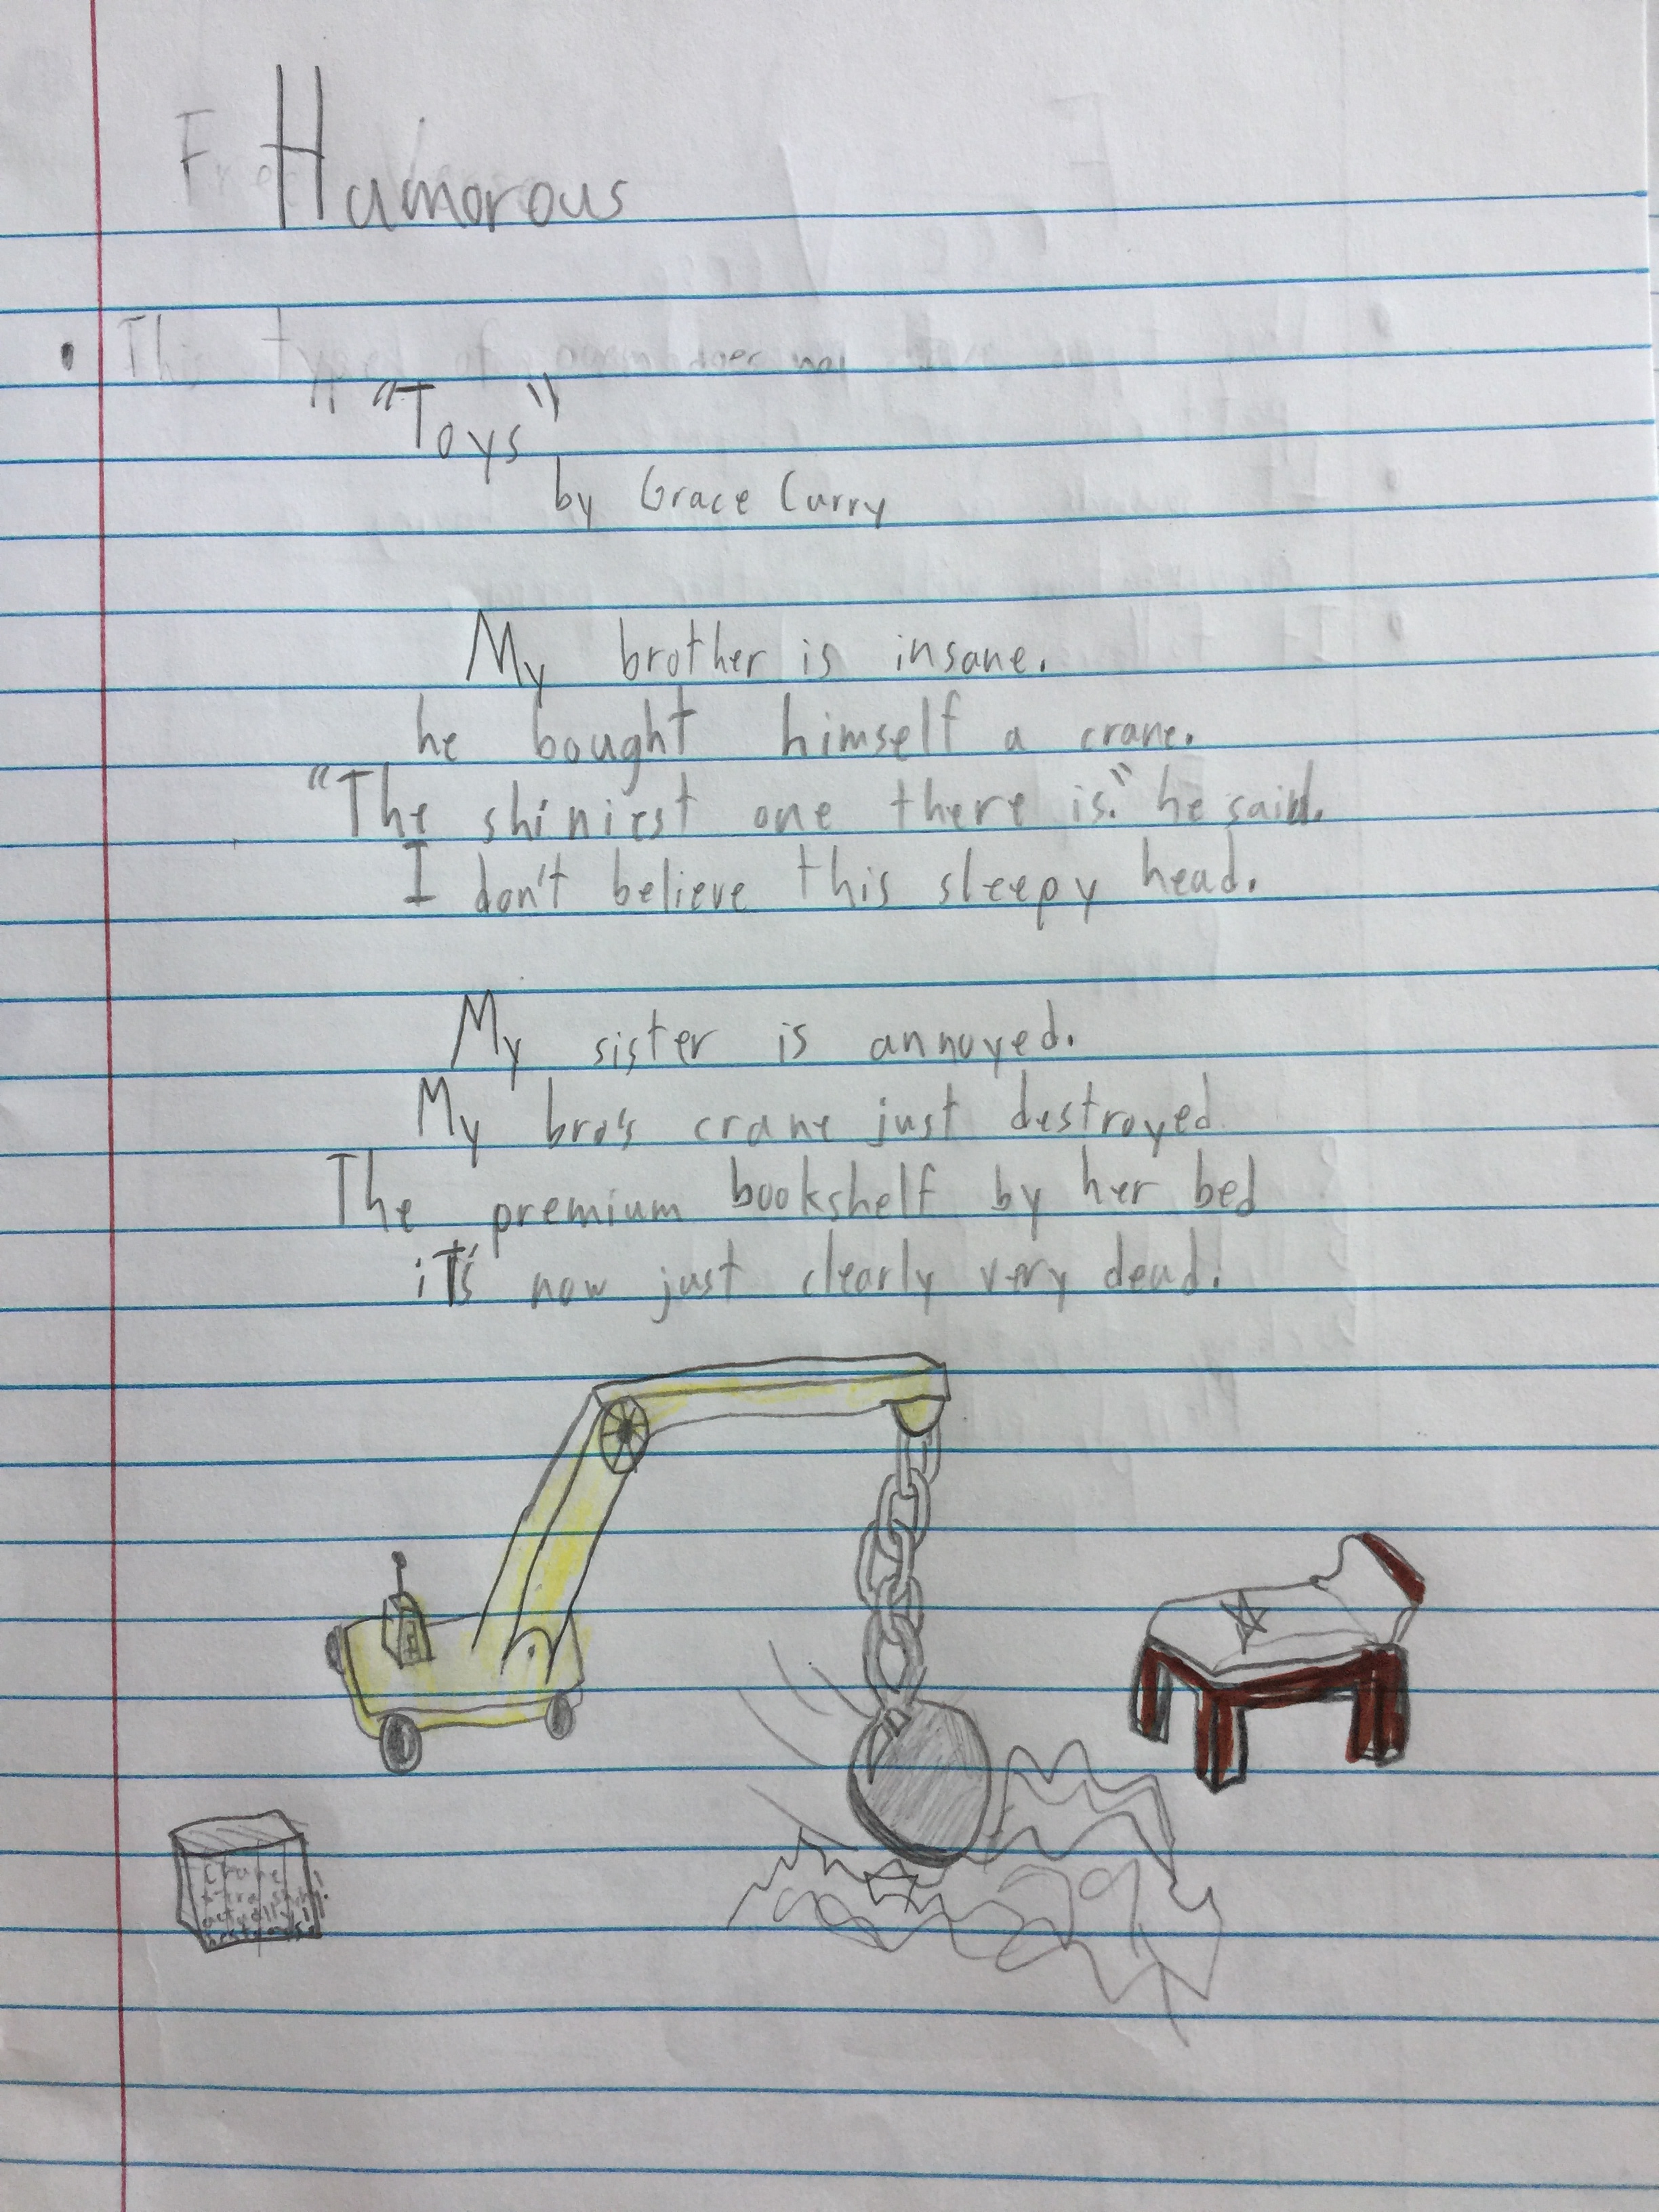 Humorous
"Toys"
by Grace Curry
My brother is insane.
he bought himself a crane.
"The shiniest one there is." he said.
I don't believe this sleepy head.
My sister is annoyed.
My bro's crane just destroyed
The premium bookshelf by her bed
it's now just clearly very dead.